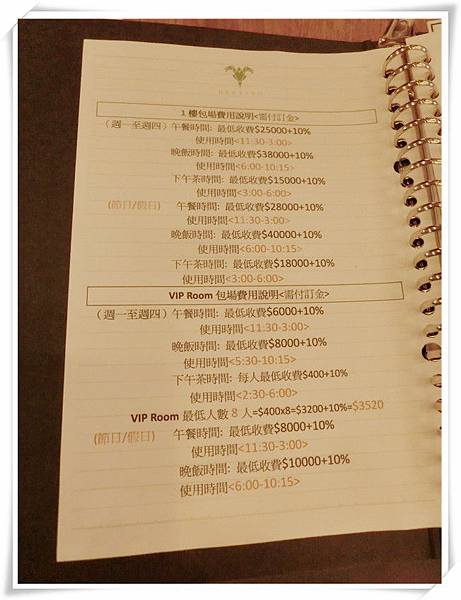 1 樓包場費用說明<需付訂金>
(週一至週四) 午餐時間: 最低收費$25000+10%
使用時間<11:30-3:00>
晚飯時間: 最低收費$38000+10%
使用時間<6:00-10:15>
下午茶時間: 最低收費$15000+10%
使用時間<3:00-6:00>
(節日/假日) 午餐時間: 最低收費$28000+10%
使用時間<11:30-3:00>
晚飯時間: 最低收費$40000+10%
使用時間<6:00-10:15>
下午茶時間: 最低收費$18000+10%
使用時間<3:00-6:00>
VIP Room 包場費用說明<需付訂金>
(週一至週四) 午餐時間: 最低收費$6000+10%
使用時間<11:30-3:00>
晚飯時間: 最低收費$8000+10%
使用時間<5:30-10:15>
下午茶時間: 每人最低收費$400+10%
使用時間<2:30-6:00>
VIP Room 最低人數 8 人=$400x8=$3200+10%=$3520
(節日/假日) 午餐時間: 最低收費$8000+10%
使用時間<11:30-3:00>
晚飯時間: 最低收費$10000+10%
使用時間<6:00-10:15>